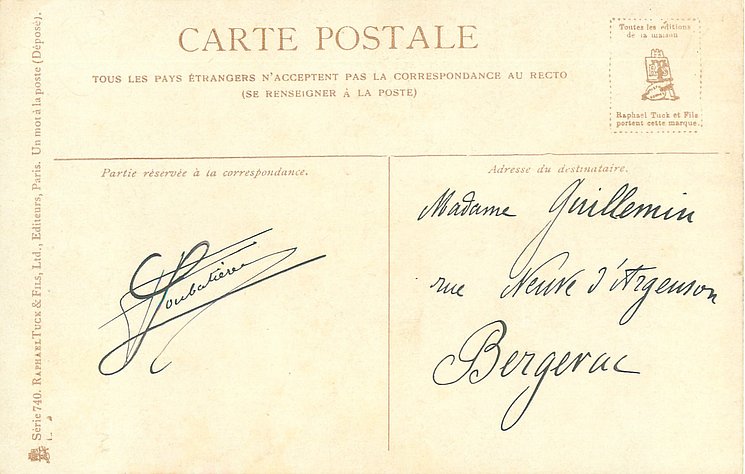 CARTE POSTALE
TOUS LES PAYS ÉTRANGERS N'ACCEPTENT PAS LA CORRESPONDANCE AU RECTO
(SE RENSEIGNER À LA POSTE)
Toutes les éditions
de la maison
Raphael Tuck et Fils
portent cette marque.
Partie réservée à la correspondance.
Adresse du destinataire.
Madame Guillemin
rue Neuve d'Argenson
Bergerac
Série 740. RAPHAEL TUCK & FILS, Ltd., Editeurs, Paris. Un mot à la poste (Déposé).